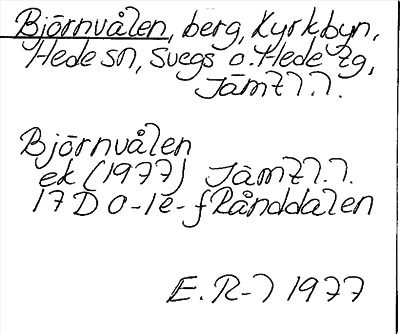 Björnvålen, berg, Kyrkbyn,
Hede sn, Svegs o. Hede tg,
Jämtl.l.
Björnvålen
ek (1977) Jämtl.l.
17D 0-1e-f Rånddalen
E.R-l 1977